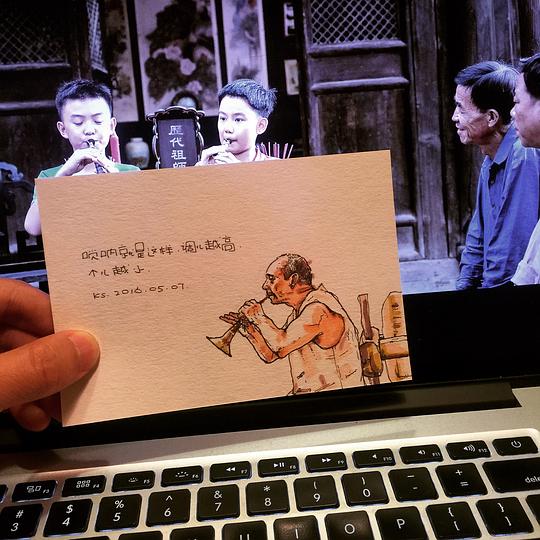 历代祖师
唢呐就是这样，调儿越高，
个儿越小。
KS. 2016.05.07.
F3
F4
F5
F6
F7
F8
F9
F10
F11
F12
# 3
$ 4
% 5
^ 6
& 7
* 8
( 9
) 0
_ -
+ =
dele
U
I
O
P
{ [
} ]